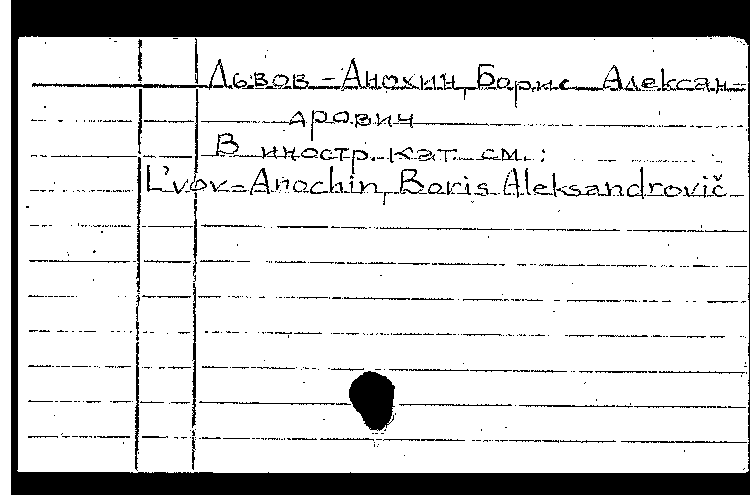 Львов-Анохин, Борис Александ-
рович
В иностр. кат. см.:
L'vov-Anochin, Boris Aleksandrovič